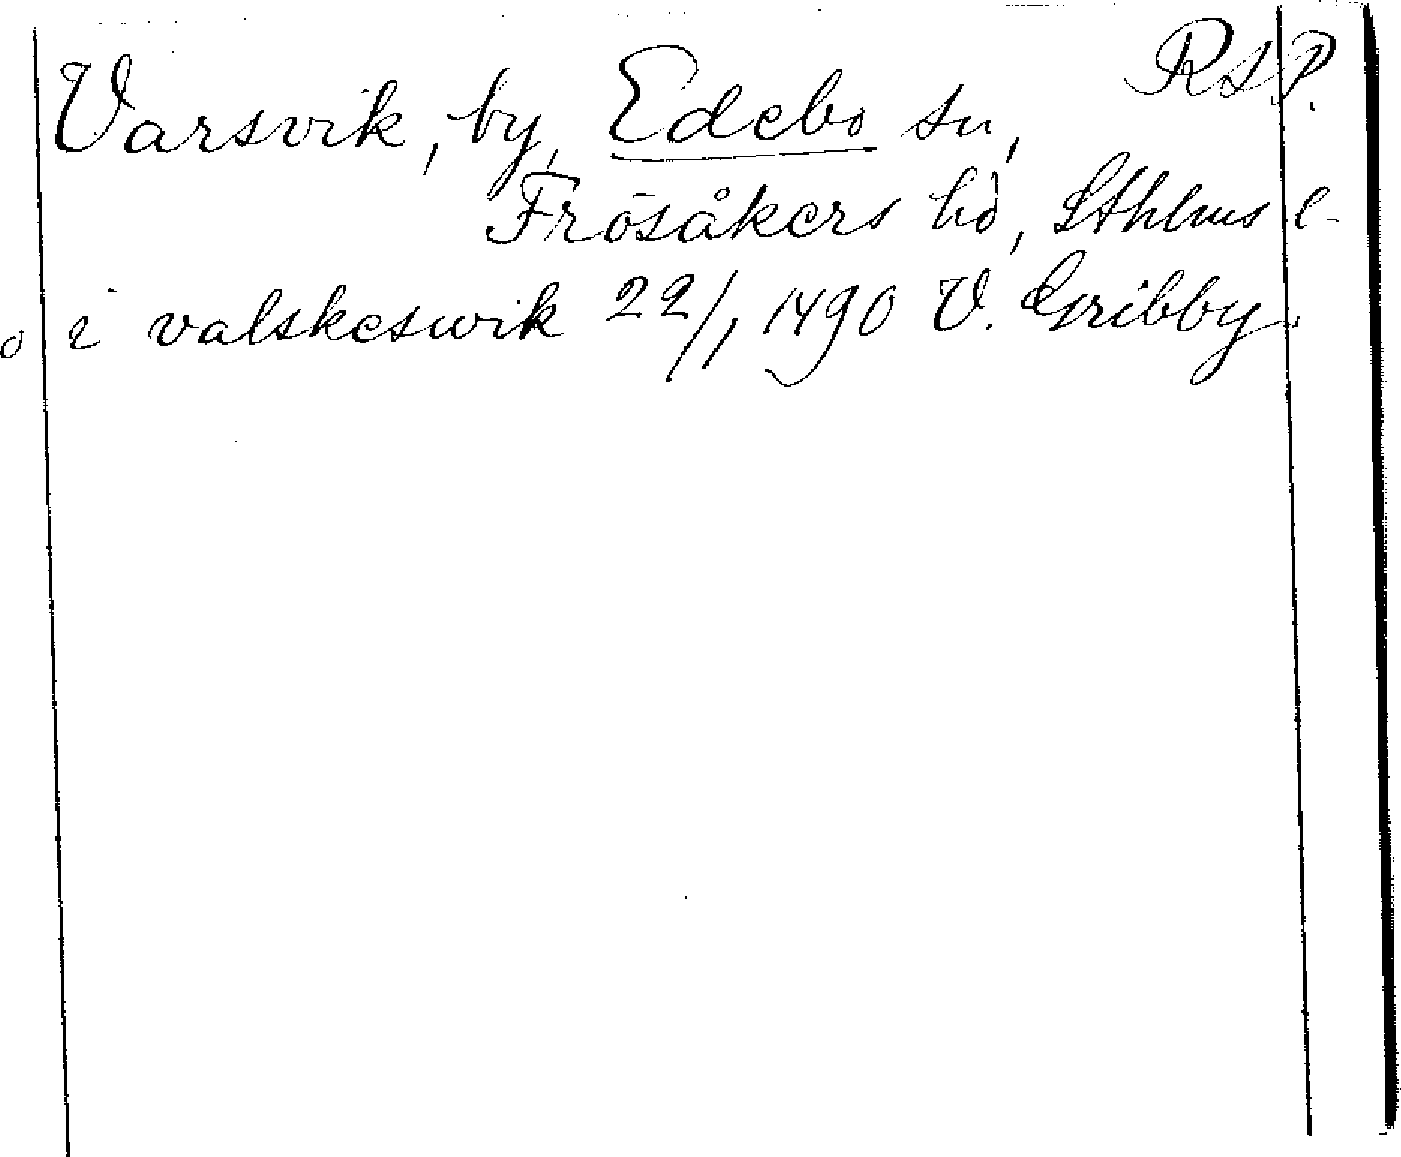 RSP.
Varsvik, by, Edebo sn,
Frösåkers hd, Sthlms l-
o i valskeswik 22/1 1490 V. Gribby.